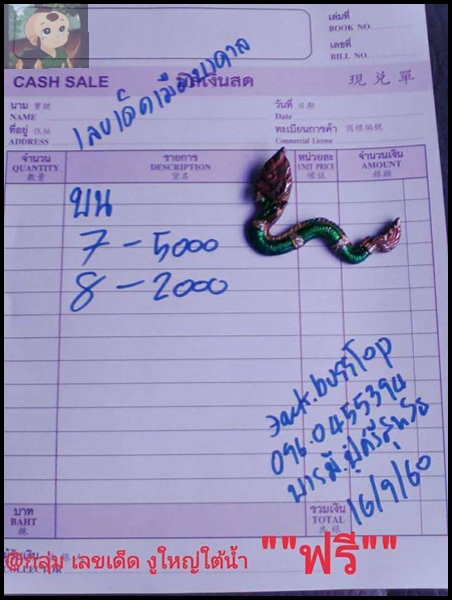 เล่มที่
BOOK NO.
เลขที่
BILL NO.
CASH SALE บิลเงินสด 現兑單
นาม 寶號
NAME
วันที่ 日期
Date
ที่อยู่ 住址
ADDRESS
ทะเบียนการค้า 商標編號
Commercial License
เลขเด็ดเมืองบาดาล
จำนวน
QUANTITY
數量
รายการ
DESCRIPTION
貨名
หน่วยละ
UNIT PRICE
จำนวนเงิน
AMOUNT
銀額
บน
7 - 5000
8 - 2000
096.0455394
16/9/60
บาท
BAHT
銖
รวมเงิน
TOTAL
COLLECTOR
@กลุ่ม เลขเด็ด งูใหญ่ใต้น้ำ ""ฟรี""